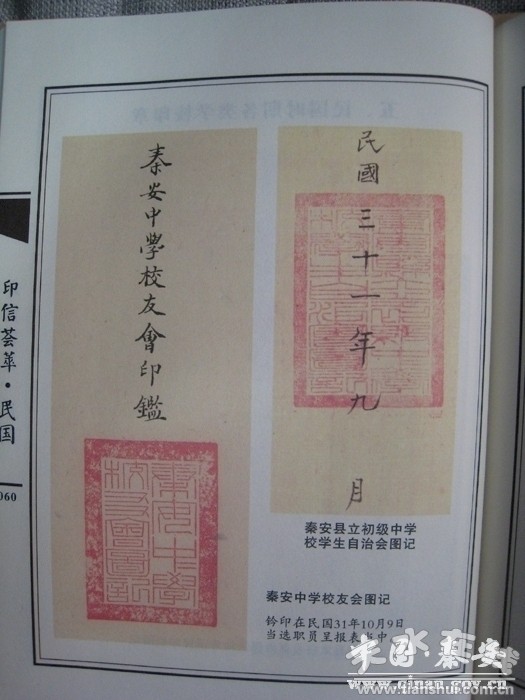 印信荟萃·民国
060
秦安中學校友會印鑑
民國三十一年九月
秦安县立初级中学
校学生自治会图记
秦安中学校友会图记
钤印在民国31年10月9日
当选职员呈报表当中。
天水在线
www.tianshui.com.cn
中国 秦安
www.qinan.gov.cn